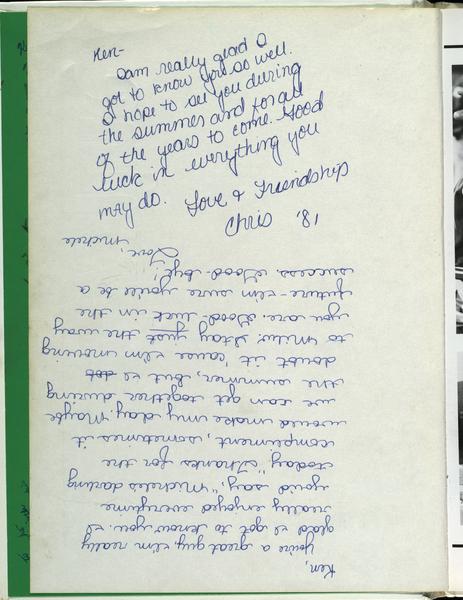 Ken-
I am really glad I
got to know you so well.
I hope to see you during
the summer and for all
of the years to come. Good
luck in everything you
may do. Love & Friendship
Chris '81
Ken,
You're a great guy. I'm really
glad I got to know you. I
really enjoyed everytime
you'd say, "Michele's darling
today." Thanks for the
compliment, sometimes it
would make my day. Maybe
we can get together during
the summer, but I dob
doubt it 'cause I'm moving
to Stay just the way
you are. Good-luck in the
future - I'm sure you'll be a
success. Good-bye!
Love,
Michele